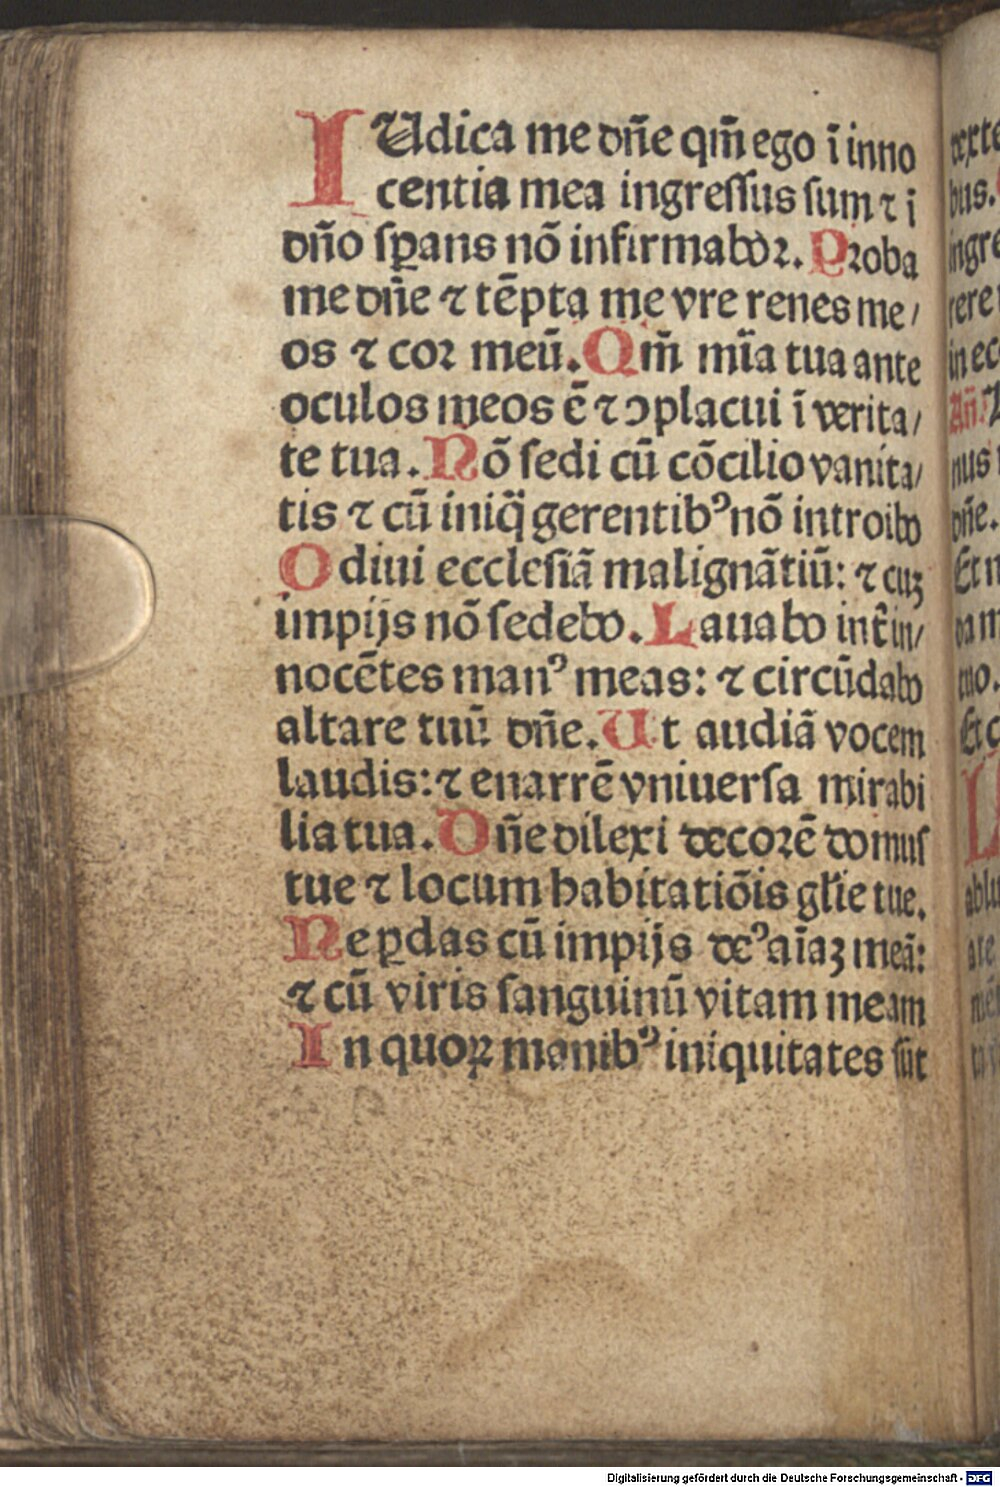 IUdica me dñe qm̃ ego ī inno
centia mea ingressus sum ⁊ i
dño sꝑans nō infirmaboꝛ. Pꝛoba
me dñe ⁊ tēpta me vre renes me/
os ⁊ coꝛ meū. Qm̃ mīa tua ante
oculos meos ē ⁊ ↄplacui ī verita/
te tua. Nō sedi cū cōcilio vanita/
tis ⁊ cū iniq̄ gerentibꝰ nō introibo
Odiui ecclesiā malignātiū: ⁊ cuꝫ
impijs nō sedebo. Lauabo int̃ in/
nocētes manꝰ meas: ⁊ circūdabo
altare tuū dñe. Ut audiā vocem
laudis: ⁊ enarrē vniuersa mirabi
lia tua. Dñe dilexi decoꝛē domus
tue ⁊ locum habitatiōis gl̃ie tue.
Ne ꝑdas cū impijs deꝰ aīaꝫ meā:
⁊ cū viris sanguinū vitam meam
In quoꝝ manibꝰ iniquitates sūt
dexte
bus.
ingre
rere
in ecc
Añ.
nus
dñe.
Et n
tuo.
Et c
ablu
Digitalisierung gefördert durch die Deutsche Forschungsgemeinschaft - DFG